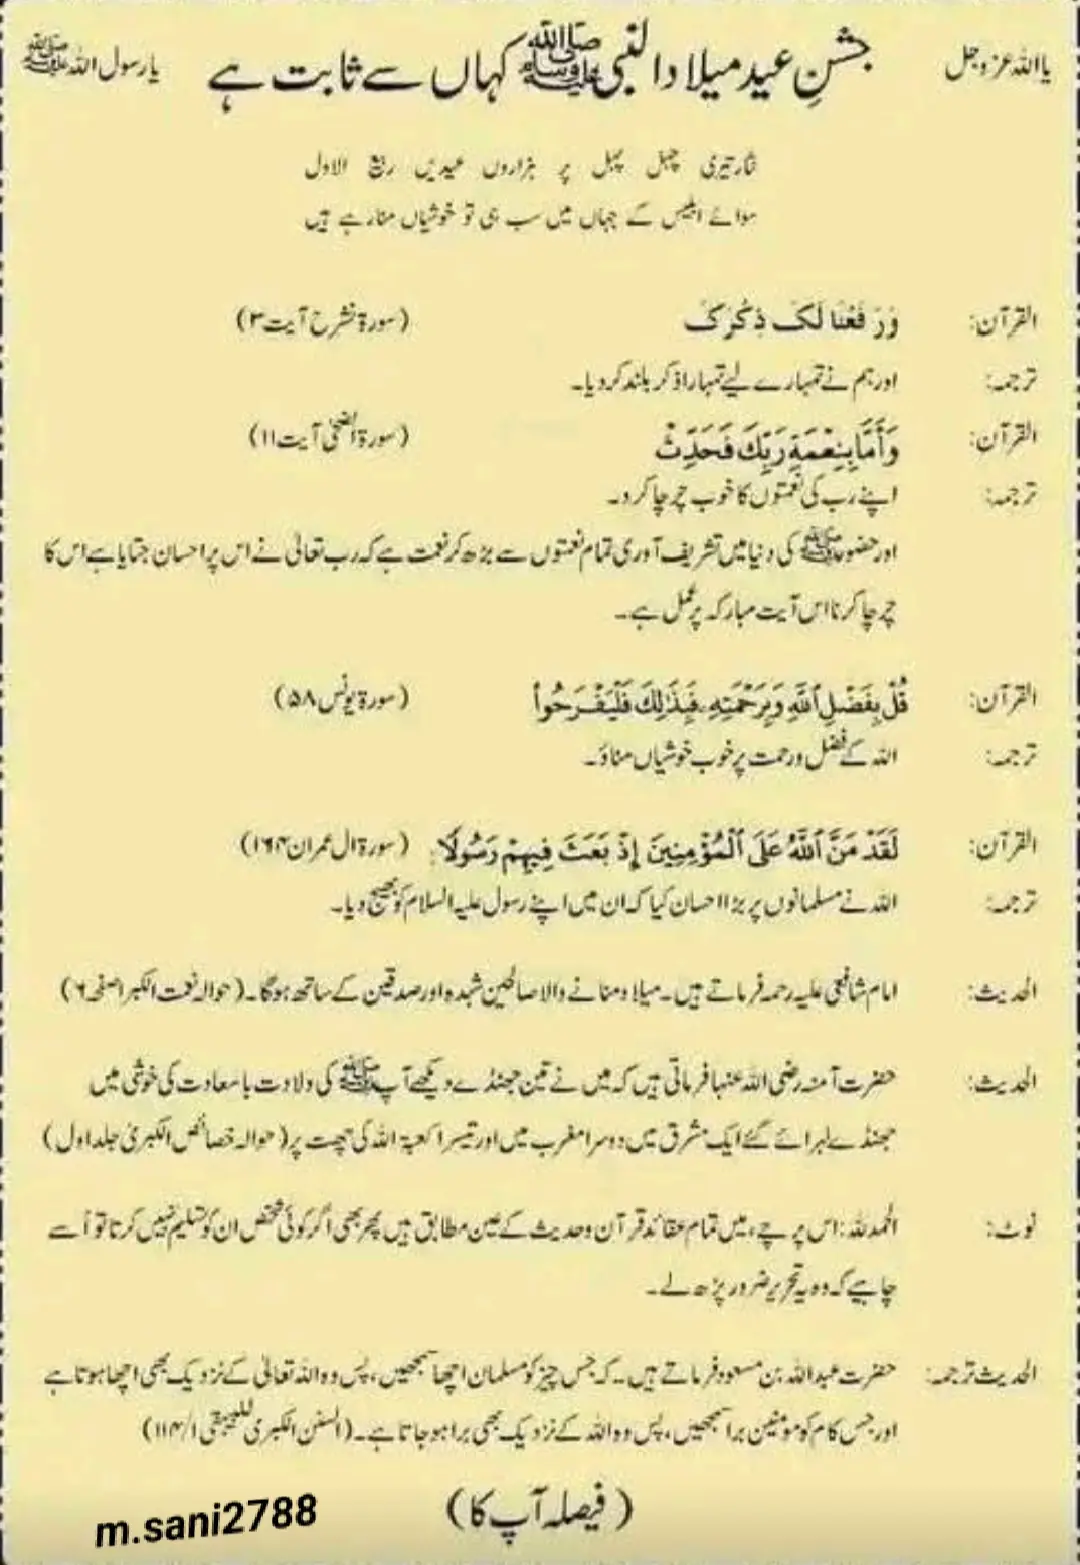 یا اللہ عزوجل
جشنِ عید میلاد النبی ﷺ کہاں سے ثابت ہے
یا رسول اللہ ﷺ
نثار تیری چہل پہل پر ہزاروں عیدیں ربیع الاول
سوائے ابلیس کے جہاں میں سب ہی تو خوشیاں منا رہے ہیں
القرآن: وَرَفَعْنَا لَکَ ذِکْرَکَ (سورۃ نشرح آیت ۳)
ترجمہ: اور ہم نے تمہارے لیے تمہارا ذکر بلند کردیا۔
القرآن: وَأَمَّا بِنِعْمَةِ رَبِّكَ فَحَدِّثْ (سورۃ الضحٰی آیت ۱۱)
ترجمہ: اپنے رب کی نعمتوں کا خوب چرچا کرو۔
اور حضور ﷺ کی دنیا میں تشریف آوری تمام نعمتوں سے بڑھ کر نعمت ہے کہ رب تعالٰی نے اس پر احسان جتایا ہے اس کا
چرچا کرنا اس آیت مبارکہ پر عمل ہے۔
القرآن: قُلْ بِفَضْلِ ٱللَّهِ وَبِرَحْمَتِهِۦ فَبِذَٰلِكَ فَلْيَفْرَحُواْ (سورۃ یونس ۵۸)
ترجمہ: اللہ کے فضل و رحمت پر خوب خوشیاں مناؤ۔
القرآن: لَقَدْ مَنَّ ٱللَّهُ عَلَى ٱلْمُؤْمِنِينَ إِذْ بَعَثَ فِيهِمْ رَسُولًا (سورۃ ال عمران ۱۶۴)
ترجمہ: اللہ نے مسلمانوں پر بڑا احسان کیا کہ ان میں اپنے رسول علیہ السلام کو بھیج دیا۔
الحدیث: امام شافعی علیہ رحمہ فرماتے ہیں۔ میلاد منانے والا صالحین شہدہ اور صدقین کے ساتھ ہوگا۔ (حوالہ نعمت الکبرا صفحہ ۶)
الحدیث: حضرت آمنہ رضی اللہ عنہا فرماتی ہیں کہ میں نے تین جھنڈے دیکھے آپ ﷺ کی ولادت باسعادت کی خوشی میں
جھنڈے لہرائے گئے ایک مشرق میں دوسرا مغرب میں اور تیسرا کعبۃ اللہ کی چھت پر (حوالہ خصائص الکبریٰ جلد اول)
نوٹ: الحمدللہ: اس پرچے میں تمام عقائد قرآن وحدیث کے عین مطابق ہیں پھر بھی اگر کوئی شخص ان کو تسلیم نہیں کرتا تو اُسے
چاہیے کہ وہ یہ تحریر ضرور پڑھ لے۔
الحدیث ترجمہ: حضرت عبداللہ بن مسعود فرماتے ہیں۔ کہ جس چیز کو مسلمان اچھا سمجھیں، پس وہ اللہ تعالٰی کے نزدیک بھی اچھا ہوتا ہے
اور جس کام کو مومنین برا سمجھیں، پس وہ اللہ کے نزدیک بھی برا ہوجاتا ہے۔ (السنن الکبریٰ للبیہقی ۱/۱۱۴)
(فیصلہ آپ کا)
m.sani2788